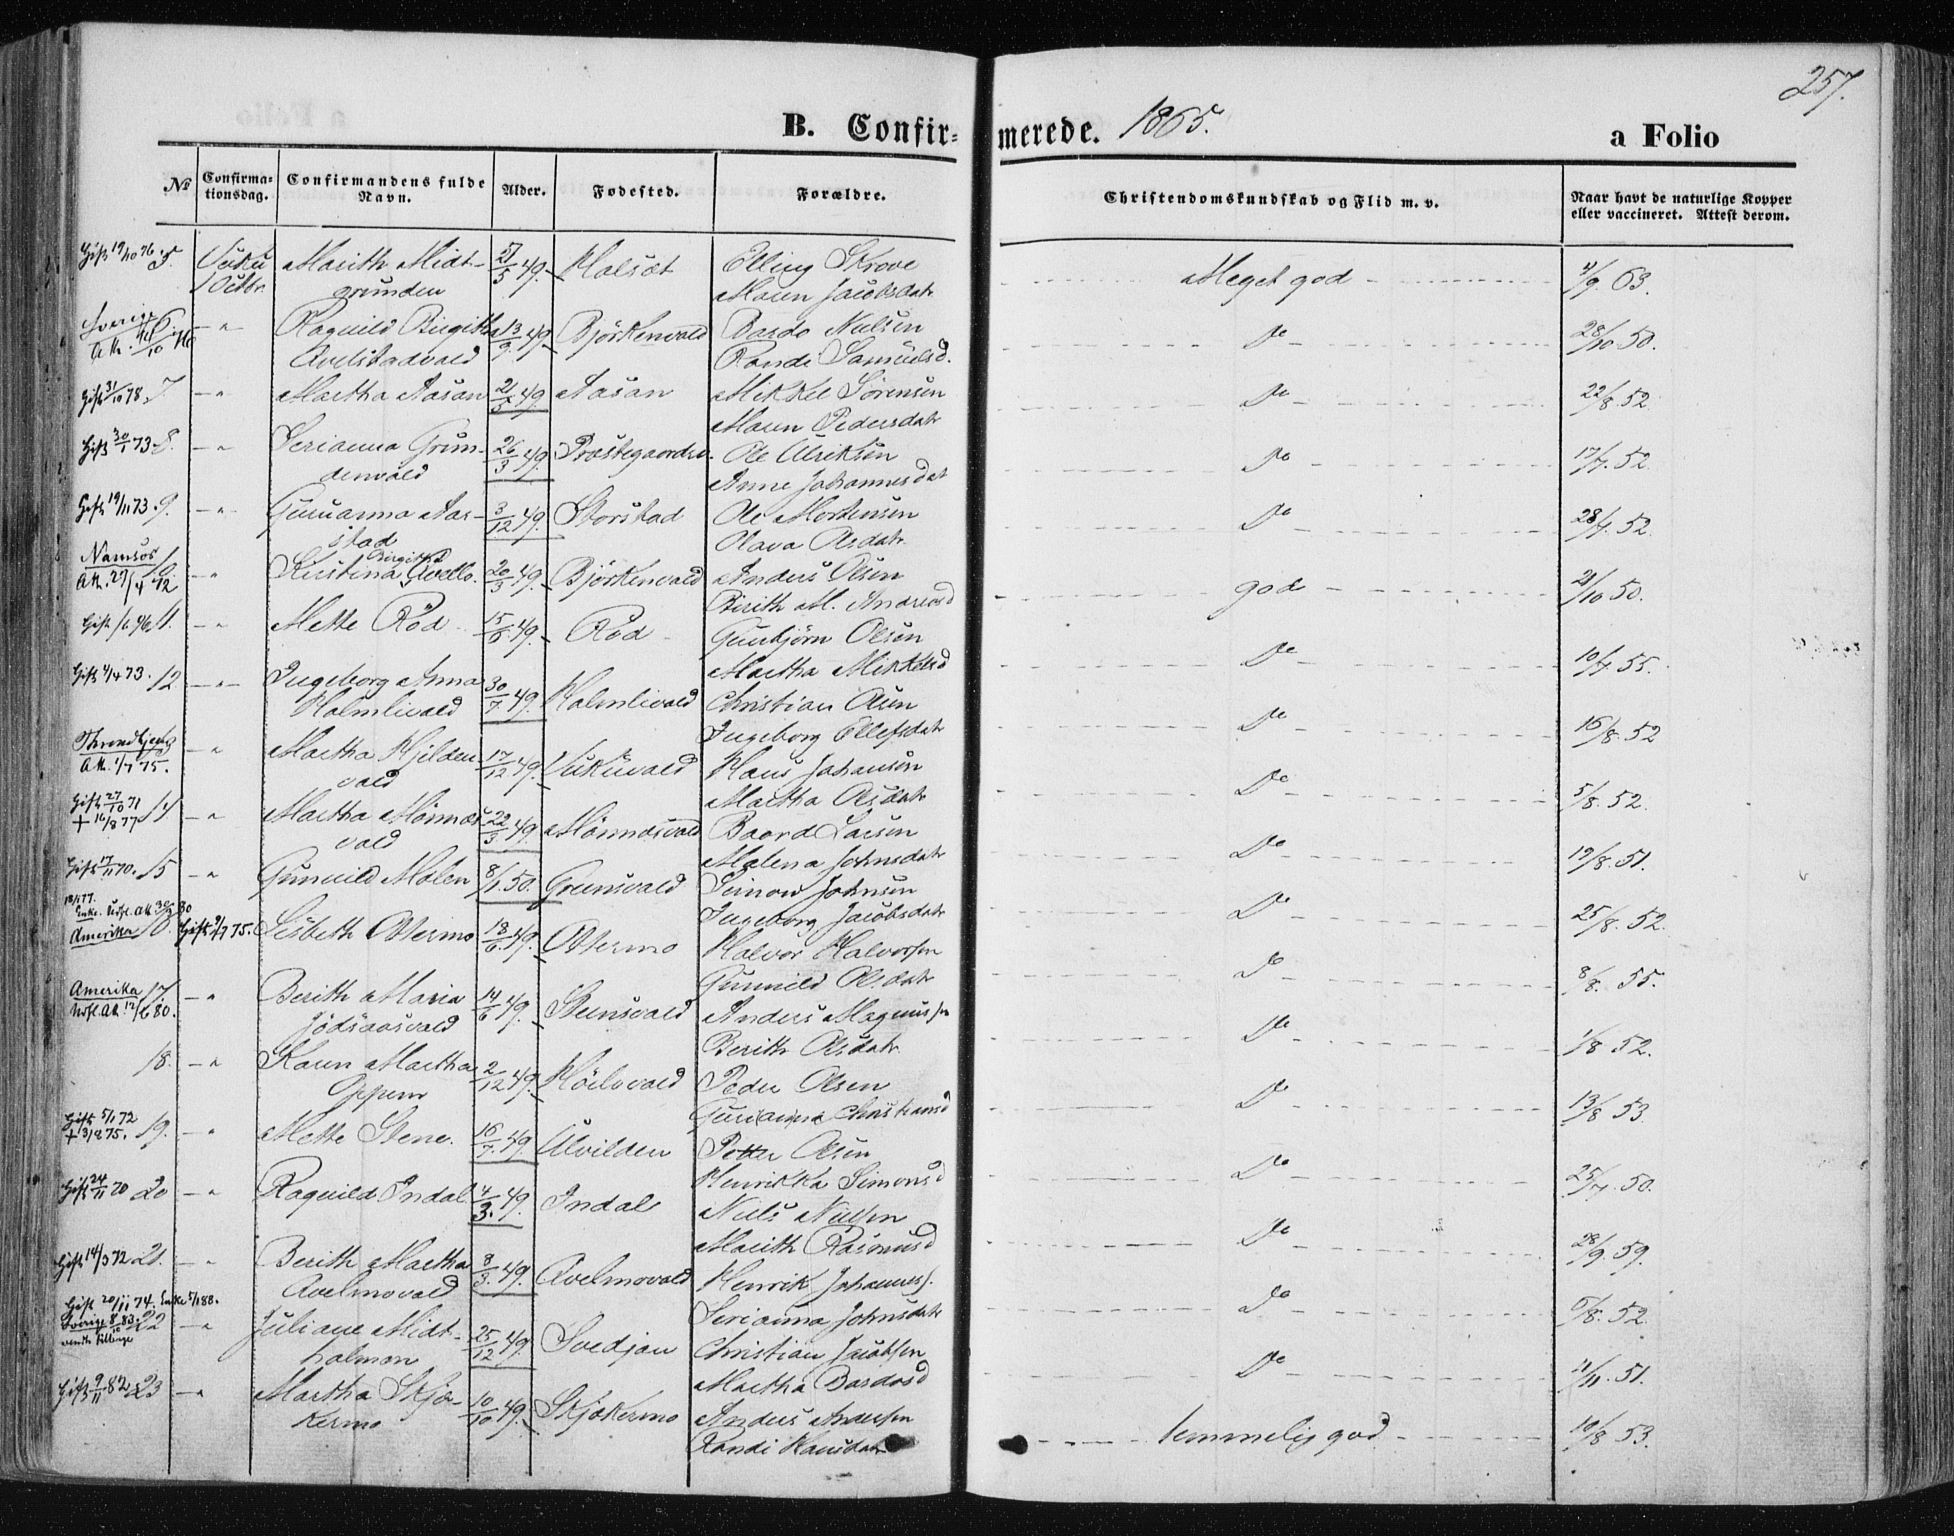 257.
B. Confir- merede. 1865. a Folio
No Confirma-tionsdag. Confirmandens fulde Navn. Alder. Fødested. Forældre. Christendomskundskab og Flid m. v. Naar havt de naturlige Kopper eller vaccineret. Attest derom.
Gift 19/10 76 5. Vuku Marith Midt- 27/5 49. Holsæt Elling Skrove Meget god 4/9. 63.
1 Octbr. grunden Maren Jacobsdatr
Sverige 6 -"- Ragnild Birgitha 13/9 49. Björkenvald Bardo Nielsen Do 28/10 50.
Avelstadvald Randi Samuelsd.
Gift 31/10 78. 7 -"- Martha Aasan 21/5 49. Aasan Mikkel Sörensen Do 22/8. 52.
Maren Pedersdatr
Gift 30/1 73 8. -"- Serianna Grun- 26/3 49. Præstegaardsv. Ole Ulriksen Do 17/7. 52.
denvald Anne Johannesdat
Gift 19/11 73. 9. -"- Guruanna Aas- 3/12 49. Storstad Ole Mortensen Do 28/7. 52.
stad Olava Olsdatr
Namsos Birgitha
Att. 27/4 72 10 -"- Kristina Qvello. 20/3 49. Björkenvald Anders Olsen god 21/10 50.
Berith M. Andreasd
11. -"- Mette Röd 15/6 49. Röd Gunbjörn Olsen Do 10/7. 55.
Martha Mikkelsd
Gift 4/4 73. 12 -"- Ingeborg Anna 30/7 49. Holmlivald Christian Olsen Do 16/8. 52
Holmlivald Ingeborg Ellefsdatr
Throndhjem 13
Att. 1/7 75. -"- Martha Hjelden 17/12 49. Vukuvald Hans Johansen Do 5/8. 52.
vald Martha Olsdatr
Gift 27/10 71
+ 16/8 77 14 -"- Martha Mönnæs 22/3 49. Mönnæsvald Baard Larsen Do 19/8. 51.
vald Malena Johnsdatr
Gift 17/11 70. 15 -"- Gunnild Molen 8/1 50. Grunsvald Simon Johnsen Do 25/8. 52.
Ingeborg Jacobsdatr
Amerika 16. Gift 9/7 75. Lisbeth Östermo 18/6. 49. Östermo Halvor Halvorsen Do 8/8. 55.
Gunnild Olsdatr
Amerika 17 -"- Berith Maria 14/6 49. Steinsvald Anders Magnussen Do 1/8 52.
Udfl. Att. 12/6 80. Jödsaasvald Berith Olsdatr
18. -"- Karen Martha 2/12 49. Höilovald Peder Olsen Do 13/8 53.
Oppem Gurianna Christiansd
Gift 5/1 72
+ 3/8 75. 19. -"- Mette Stene. 16/7. 49. Ulvilden Petter Olsen Do 25/7. 50.
Henrikka Simonsd
Gift 24/11 70 20 -"- Ragnild Indal 4/3. 49. Indal Niels Nielsen Do 28/9. 59.
Marith Rasmusd
Gift 14/3 72 21. -"- Berith Martha 8/3. 49. Avelmovald Henrik Johannes. Do 6/8. 52.
Avelmovald Serianna Johnsdatr
Gift 20/11 74. Enke 5/1 88.
Sverige 8/10 83. 22 -"- Juliane Midt- 25/12 49. Svedjan Christian Jacobsen Do 4/11. 51.
vendt tilbage holmen Martha Bardosd
Gift 9/11 82 23 -"- Martha Skjæ- 10/10 49. Skjækermo Anders Andersen temmelig god 10/8 53.
kermo Randi Hansdatr